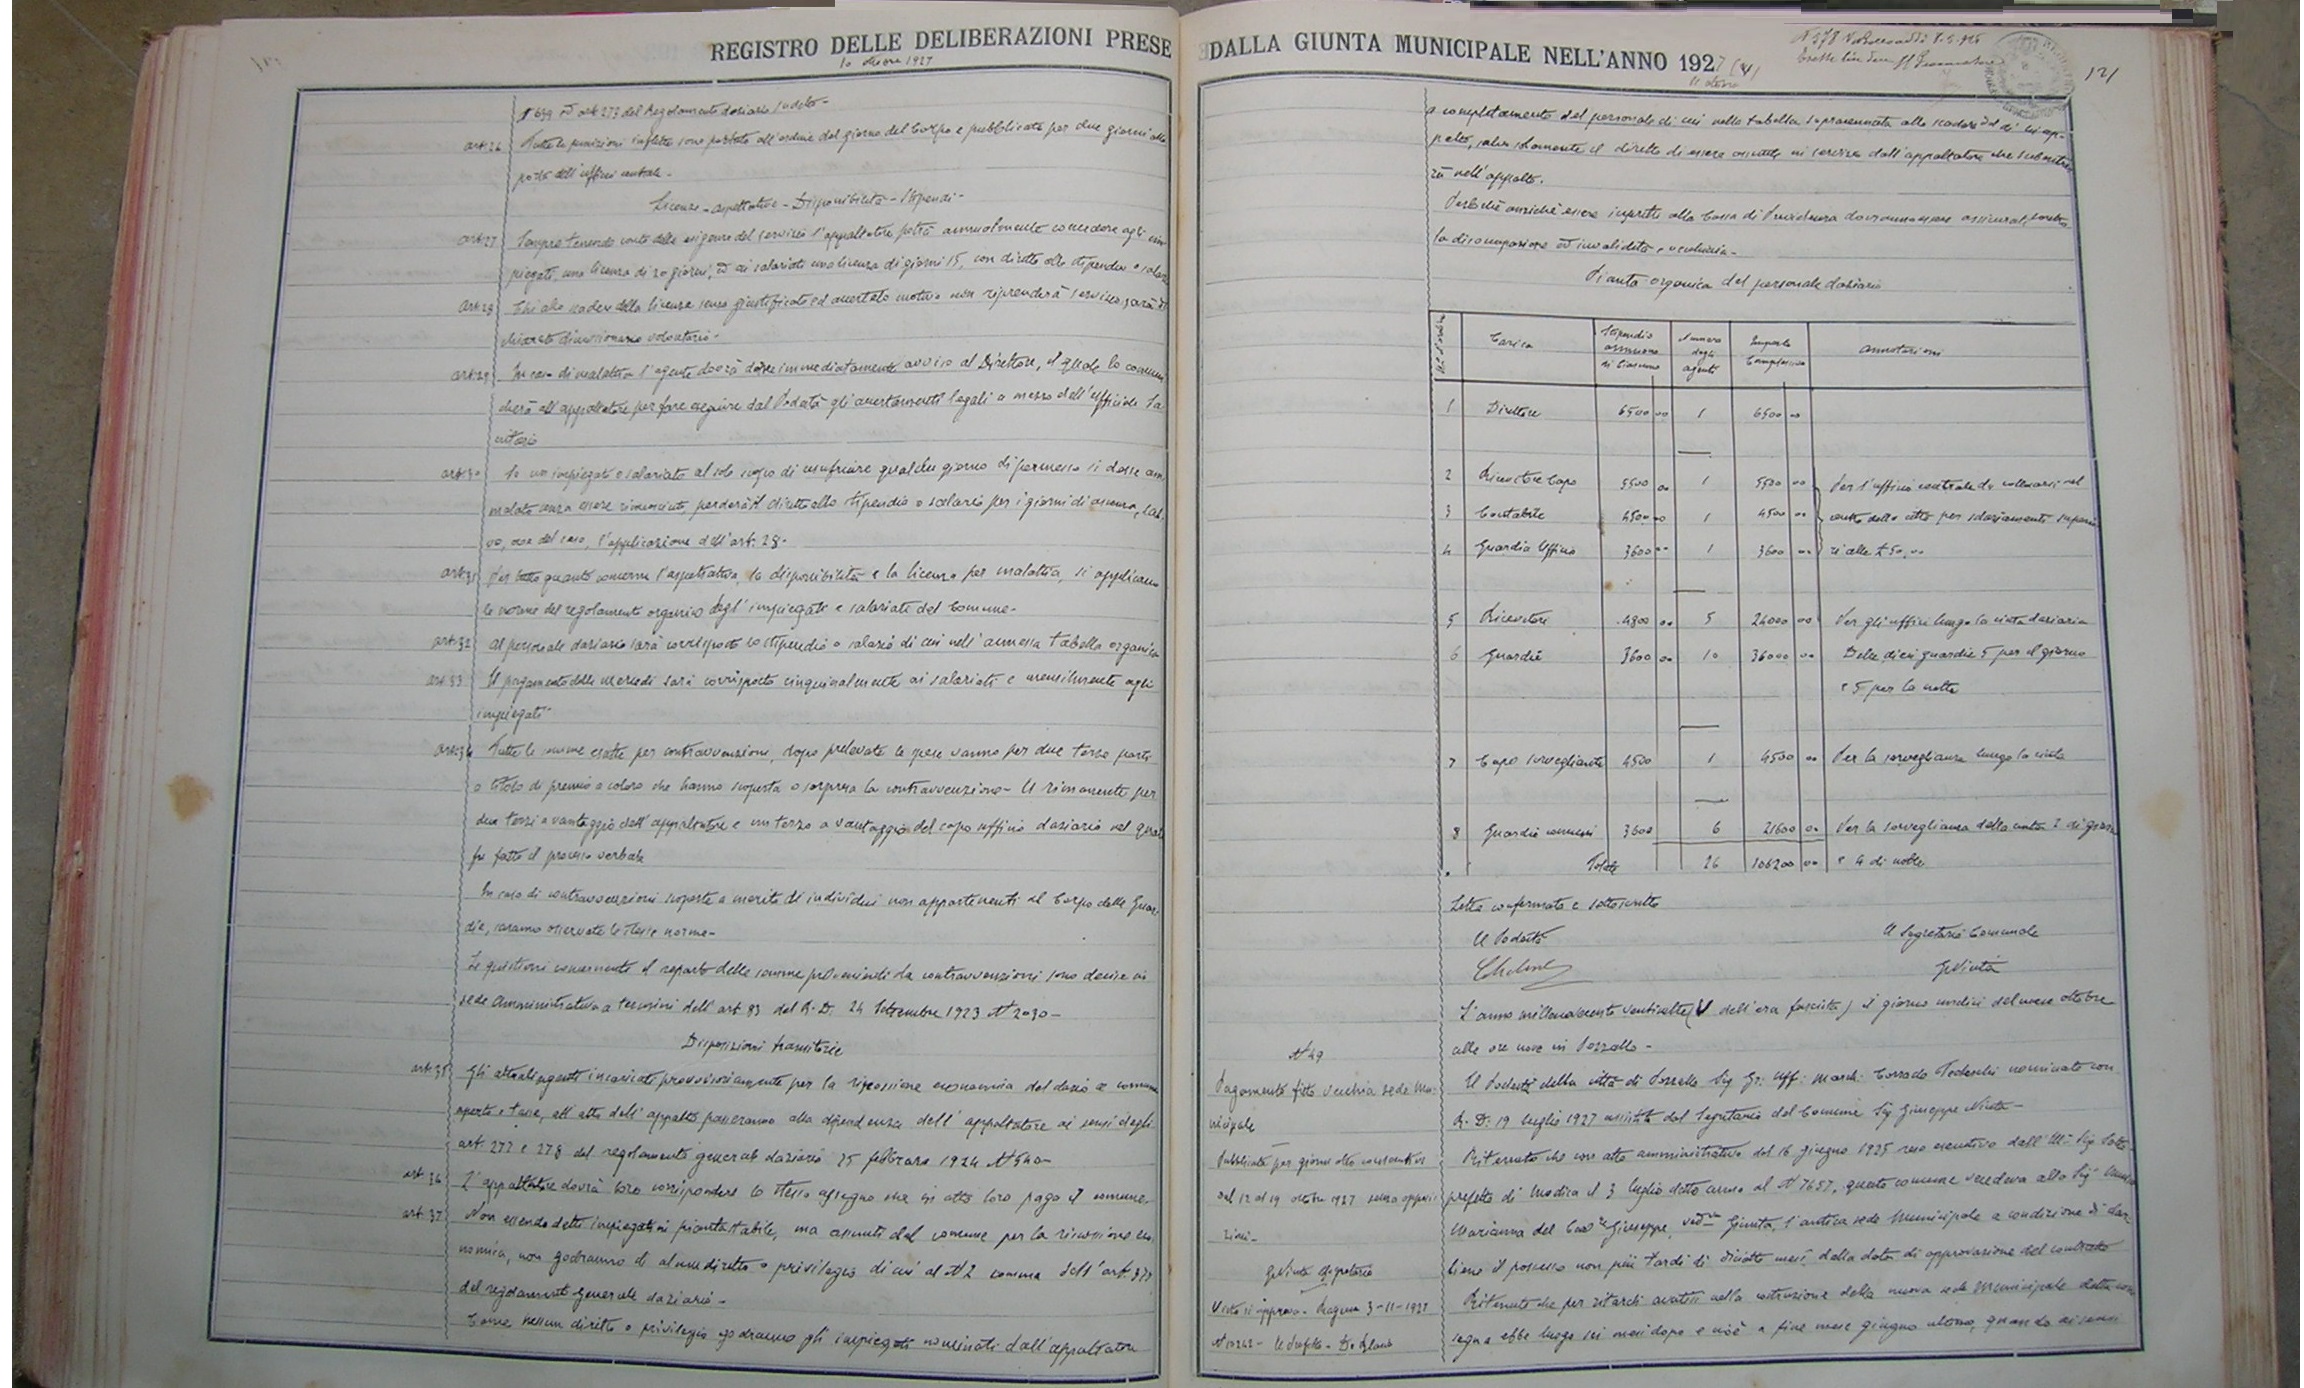 REGISTRO DELLE DELIBERAZIONI PRESE
10 ottobre 1927
N 639 ed art. 273 del Regolamento daziario sudetto -
art. 26 Tutte le punizioni inflitte sono portate all'ordine del giorno del Corpo e pubblicate per due giorni alla
porta dell'ufficio centrale -
Licenze - aspettative - Disponibilità - Stipendi -
art. 27 Sempre tenendo conto delle esigenze del servizio l'appaltatore potrà annualmente concedere agli im
piegati, una licenza di 20 giorni, ed ai salariati una licenza di giorni 15, con diritto allo stipendio o salario
art. 28 Chi allo scadere della licenza senza giustificato ed accertato motivo non riprenderà servizio, sarà di
chiarato dimissionario volontario -
art. 29 In caso di malattia l'agente dovrà dare immediatamente avviso al Direttore, il quale lo comuni
cherà all'appaltatore per fare eseguire dal Podestà gli accertamenti legali a mezzo dell'Ufficiale Sa
nitario
art. 30 Se un impiegato o salariato al solo scopo di usufruire qualche giorno di permesso si desse am
malato senza essere riconosciuto, perderà il diritto allo stipendio o salario per i giorni di assenza, sal
vo, ove del caso, l'applicazione dell'art. 28 -
art. 31 Per tutto quanto concerne l'aspettativa, la disponibilità e la licenza per malattia, si applicano
le norme del regolamento organico degl'impiegati e salariati del Comune -
art. 32 Al personale daziario sarà corrisposto lo stipendio o salario di cui nell'annessa tabella organica
art. 33 Il pagamento delle mercedi sarà corrisposto cinquinalmente ai salariati e mensilmente agli
impiegati -
art. 34 Tutte le somme esatte per contravvenzioni, dopo prelevate le spese vanno per due terze parti
a titolo di premio a coloro che hanno scoperta o sorpresa la contravvenzione - Il rimanente per
due terzi a vantaggio dell'appaltatore e un terzo a vantaggio del capo ufficio daziario nel quale
fu fatto il processo verbale
In caso di contravvenzioni scoperte a merito di individui non appartenenti al Corpo delle Guar
die, saranno osservate le stesse norme -
Le questioni concernenti il reparto delle somme provenienti da contravvenzioni sono decise in
sede Amministrativa a termini dell'art. 83 del R. D. 24 Settembre 1923 N 2030 -
Disposizioni transitorie
art. 35 Gli attuali agenti incaricati provvisoriamente per la riscossione economica del dazio a comune
aperto e tasse, all'atto dell'appalto passeranno alla dipendenza dell'appaltatore ai sensi degli
art. 277 e 278 del regolamento generale daziario 25 febbraio 1924 N 540 -
art. 36 L'appaltatore dovrà loro corrispondere lo stesso assegno che in atto loro paga il comune -
art. 37 Non essendo detti impiegati in pianta stabile, ma assunti dal comune per la riscossione eco
nomica, non godranno di alcun diritto o privilegio di cui al N 2 comma dell'art. 277
del regolamento generale daziario -
Come nessun diritto o privilegio godranno gli impiegati nominati dall'appaltatore
DALLA GIUNTA MUNICIPALE NELL'ANNO 1927 (V)
11 ottobre
121
a completamento del personale di cui nella tabella sopracennata allo scadere di
palto, salvo solamente il diritto di essere assunti in servizio dall'appaltatore che subentre
rà nell'appalto.
essere iscritti alla Cassa di Previdenza dovranno essere assicurati contro
la disoccupazione ed invalidità e vecchiaia -
Pianta organica del personale daziario
N. d'ordine | Carica | Stipendio annuo di Ciascuno | Numero degli agenti | Importo Complessivo | annotazioni
1 Direttore 6500 00 1 6500 00
2 Ricevitore Capo 5500 00 1 5500 00 Per l'ufficio centrale da collocarsi nel
3 Contabile 4500 00 1 4500 00 centro della città per sdaziamenti superio
4 Guardia Ufficio 3600 00 1 3600 00 ri alle £ 50,00
5 Ricevitori 4800 00 5 24000 00 Per gli uffici lungo la cinta daziaria
6 Guardie 3600 00 10 36000 00 Delle dieci guardie 5 per il giorno
e 5 per la notte
7 Capo sorvegliante 4500 1 4500 00 Per la sorveglianza lungo la cinta
8 Guardie 3600 6 21600 00 Per la sorveglianza della cinta 2 di giorno
Totale 26 106200 00 e 4 di notte
Letto confermato e sottoscritto
Il Podestà
Il Segretario Comunale
G Nivita
L'anno millenovecento ventisette (V dell'era fascista) il giorno undici del mese ottobre
alle ore nove in Pozzallo -
N 49
Pagamento fitto vecchia sede Mu=
nicipale
Pubblicata per giorni otto consecutivi
dal 12 al 19 ottobre 1927 senza opposi=
zioni -
G Nivita Segretario
Visto si approva - Ragusa 3-11-1927
Il Podestà della città di Pozzallo Sig. Gr. Uff. March. Corrado Tedeschi nominato con
R. D. 19 luglio 1927 assistito dal Segretario del Comune Sig Giuseppe Nivita -
Ritenuto che con atto amministrativo del 16 giugno 1925 reso esecutivo dall'Ill. Sig. Sotto
prefetto di Modica il 3 luglio detto anno al N 7657, questo comune vendeva alla Sig.
Marianna del Cav. Giuseppe, ved. Giunta, l'antica sede Municipale a condizione di dar
bene il possesso non più tardi di diciotto mesi dalla data di approvazione del contratto
Ritenuto che per ritardi avutisi nella costruzione della nuova sede Municipale detta con
segna ebbe luogo sei mesi dopo e cioè a fine mese giugno ultimo, quando ai sensi